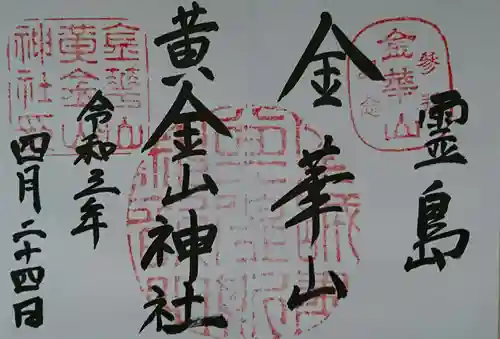 霊島
金華山
黄金山神社
令和三年
四月二十四日
金華山
参拝
記念
金華山
黄金山
神社